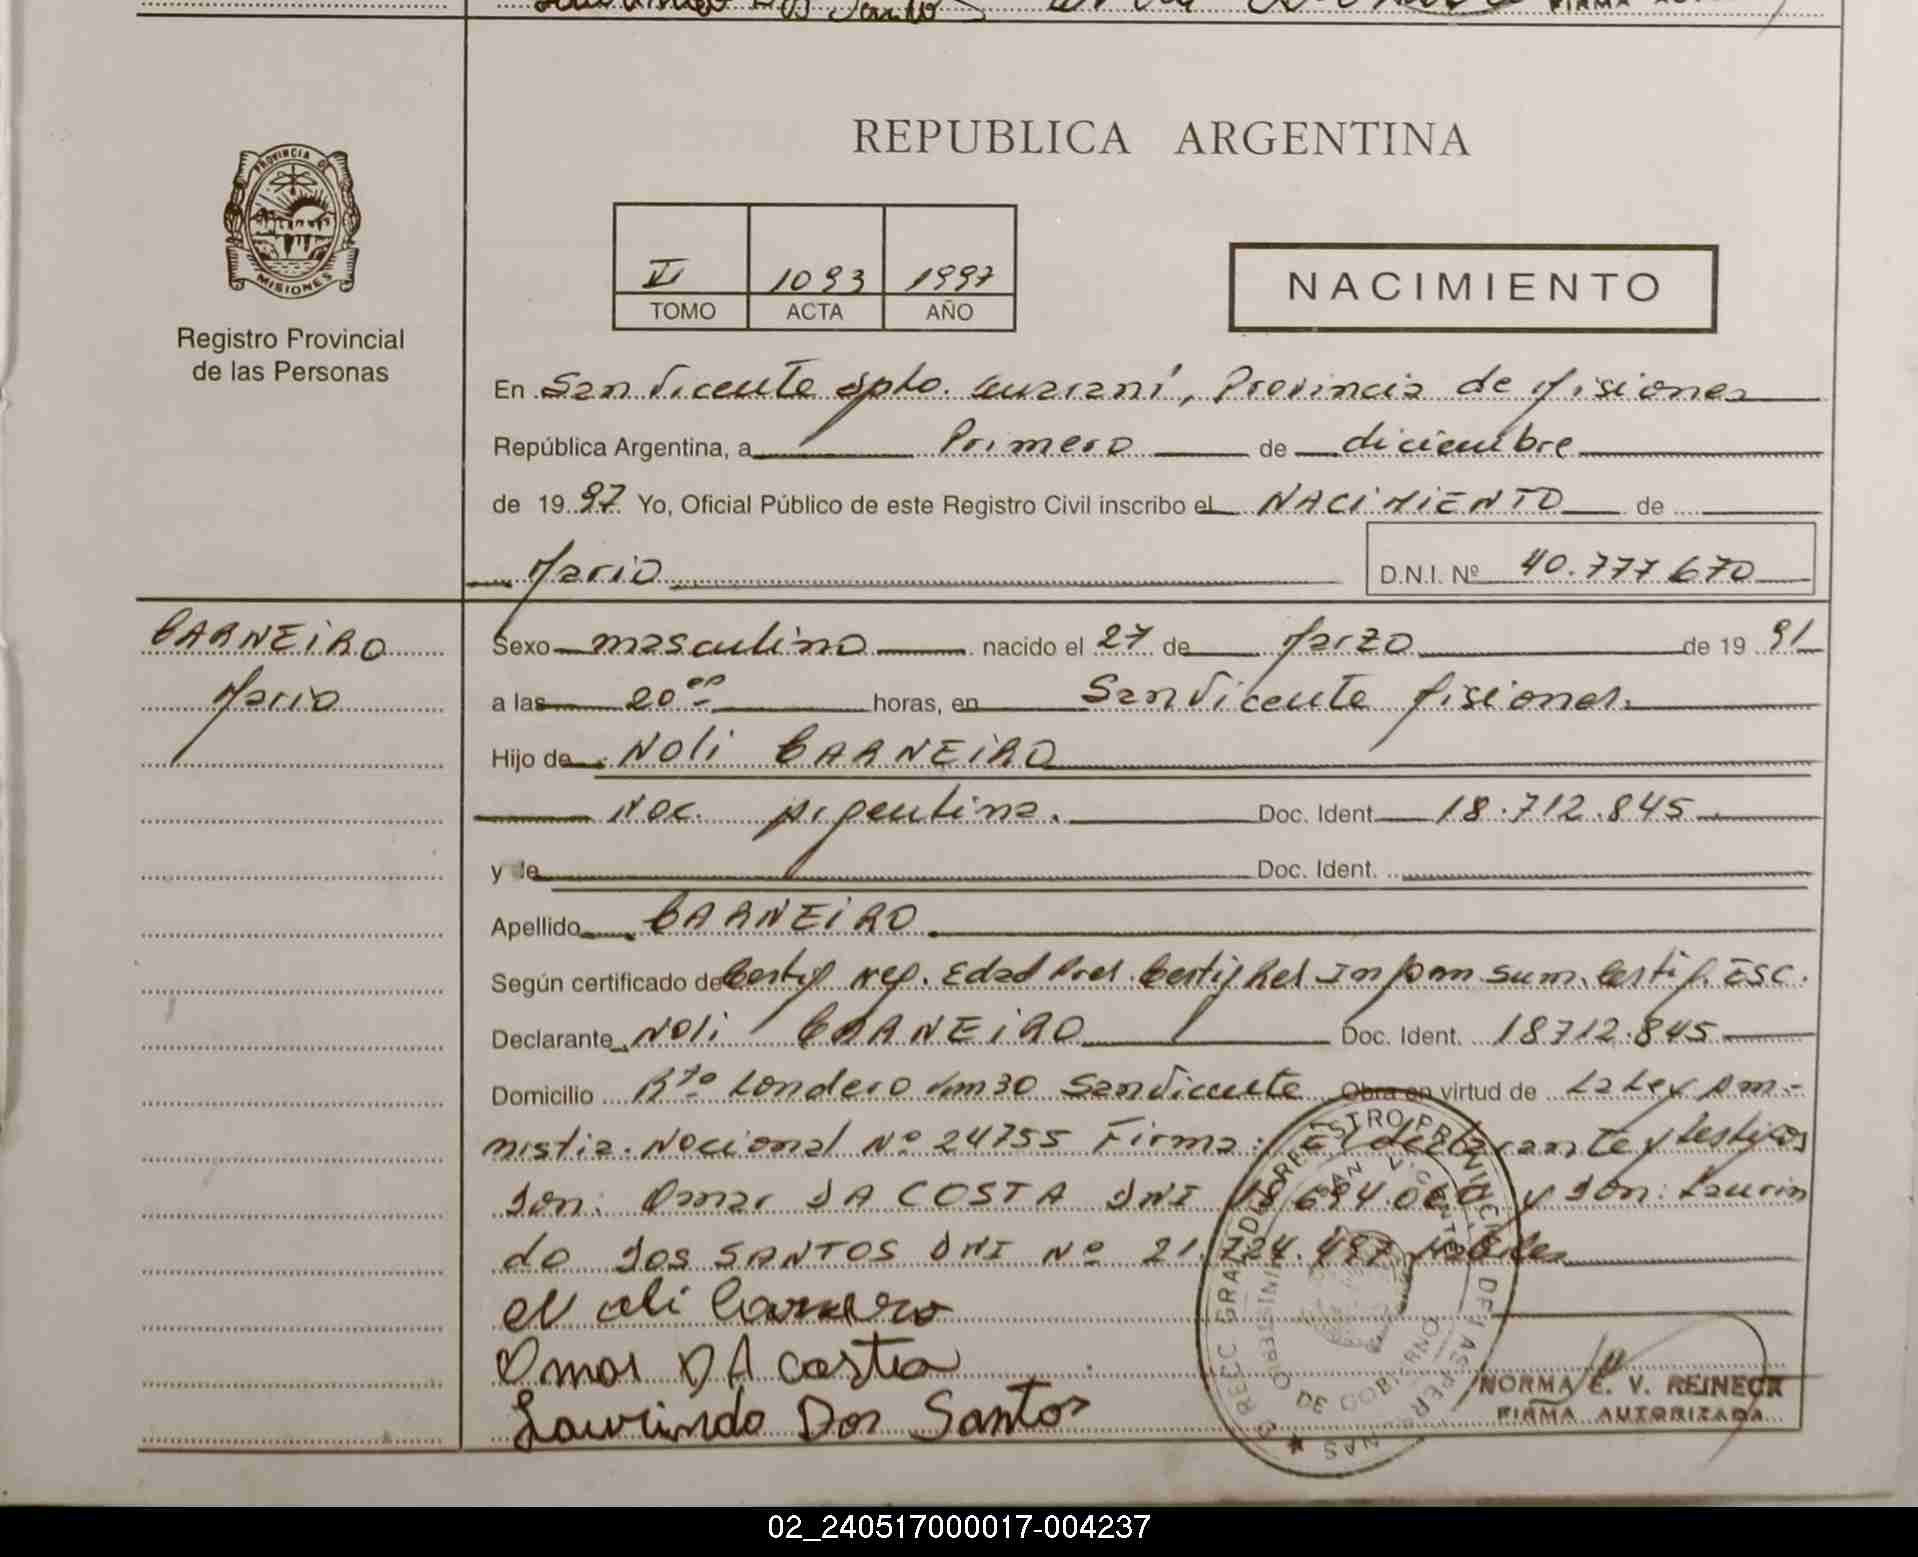 Dos Santos
FIRMA
REPUBLICA ARGENTINA
PROVINCIA DE
MISIONES
Registro Provincial
de las Personas
II 1093 1997
TOMO ACTA AÑO
NACIMIENTO
En San Vicente Dpto. Guaraní, Provincia de Misiones
República Argentina, a Primero de diciembre
de 19 97 Yo, Oficial Público de este Registro Civil inscribo el NACIMIENTO de
Mario D.N.I. Nº 40.777670
CARNEIRO
Mario
Sexo masculino nacido el 27 de Marzo de 19 91
a las 20 00 horas, en San Vicente Misiones.
Hijo de Noli CARNEIRO
Nac. Argentina. Doc. Ident. 18.712.845
y de Doc. Ident.
Apellido CARNEIRO
Según certificado de Certif Neg. Edad Pres. Certif Rel Inform Sum. Certif. Esc.
Declarante Noli CARNEIRO Doc. Ident. 18712.845
Domicilio Rto Londero Km30 San Vicente Obra en virtud de La Ley Am-
nistia. Nacional Nº 24755 Firma: El declarante y testigos
Don: Omar DA COSTA DNI y Don: Laurin
do Dos SANTOS DNI Nº 21.724.497
Noli Carneiro
Omar DA costa
Laurindo Dos Santos
NORMA E. V. REINECK
FIRMA AUTORIZADA
02_240517000017-004237